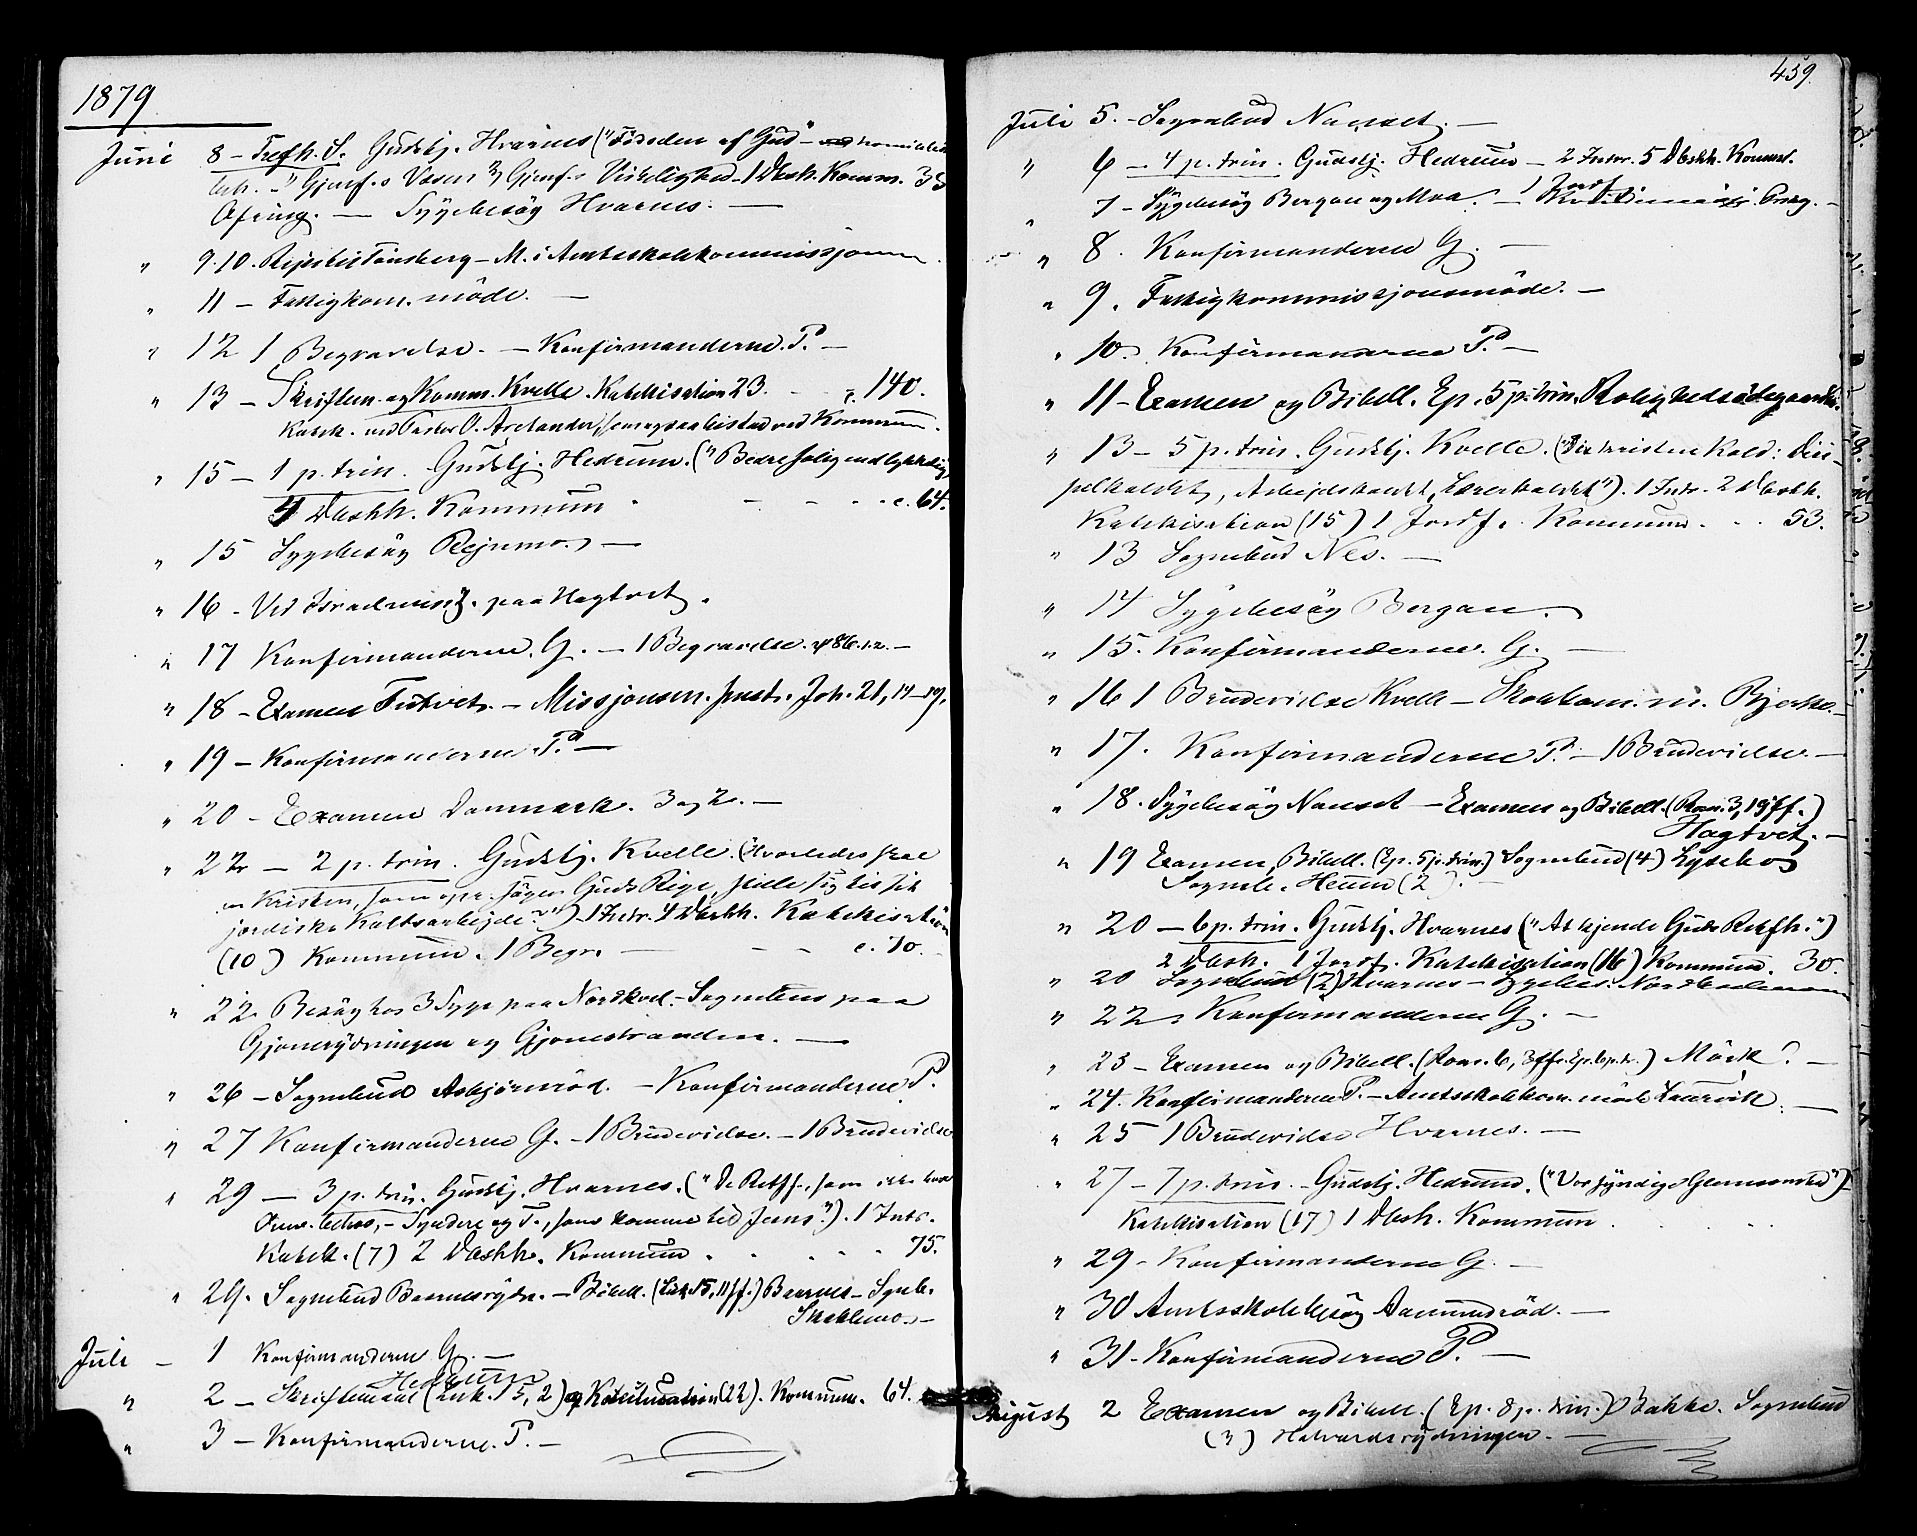 1879
Juni 8 – Trefh. S. Gudstj. Hvarnes ("Fødselen af Gud" –
Dbsh. Komm. 35
Ofring. — Sygebesøg Hvarnes. —
" 9.10. Rejse til Tønsberg – M. i Amtsskolekommissjonen
" 11 – Fattigkom.møde. —
" 12 1 Begravelse. – Konfirmanderne. P. –
" 13 – Skriftem. og Komm. Kvelle. Katekisation 23. c. 140.
Katek. ved Pastor O. Arelander, Kommun.
" 15 – 1 p. trin. Gudstj. Hedrum. ("Bedre salig end lykkelig
4 Dbshh. Kommun c. 64.
" 15 Sygebesøg Rejsmo. –
" 16 – Ved Israelmis. paa Hagtvet.
" 17 Konfirmanderne. G. – 1 Begravelse. –
" 18 – Examen Tutvet. – Missjonsm. Joh. 21, 14–19.
" 19 – Konfirmanderne P. –
" 20 – Examen Danmark. 3 og 2. –
" 22 – 2 p. trin. Gudstj. Kvelle. (Hvorledes skal
en Kristen, som søger Guds Rige, stille sig til sit
jordiske Kaldsarbejde?") – 1 Intr. 4 Dbshh. Katekisation
(10) Kommun. 1 Begr. – c. 70.
" 22. Besøg hos 3 Syge paa Nordkvel. – Sognebud paa
Gjønerydningen og Gjønestranden. —
" 26 – Sognebud Asbjørnrød. – Konfirmanderne P.
" 27 Konfirmanderne G. – 1 Brudevielse. – 1 Brudevielse
" 29 – 3 p. trin. Gudstj. Hvarnes. ("De Retff., som ikke have
– Syndere og T., som komme til Jesus"). 1 Intr.
Katek. (7) 2 Dbshh. Kommun 75.
" 29. Sognebud Baanerydn. – Bibell. (Luk. 15, 11 ff.) Baanes – Sgneb.
Skaklemo. –
Juli – 1 Konfirmanderne G. –
Hedrum
" 2 – Skriftemaal (Luk. 15, 2) og Katekisation (22). Kommun. 64.
" 3 – Konfirmanderne. P. –
459.
Juli 5. – Sognebud Nanset. –
" 6 – 4 p. trin. Gudstj. Hedrum – 2 Intr. 5 Dbshh. Kommun.
" 7 – Sygebesøg Bergan og Moa. – 1 Jordf.
" 8. Konfirmanderne G. –
" 9. Fattigkommissjonsmøde. –
" 10. Konfirmanderne P. –
" 11 – Examen og Bibell. Ep. 5 p. trin. Rolighedsødegaarden.
" 13 – 5 p. trin. Gudstj. Kvelle. ("Det kristne Kald: Disi-
pelkaldet, Arbejdskaldet, Lærerkaldet"). 1 Intr. 2 Dbshh.
Katekisation (15) 1 Jordf. Kommun. 53.
" 13 Sognebud Nes. –
" 14 Sygebesøg Bergan. –
" 15. Konfirmanderne. G. –
" 16 1 Brudevielse Kvelle – Skolkom.m. Bjerke. –
" 17. Konfirmanderne P. – 1 Brudevielse. –
" 18. Sygebesøg Nanset – Examen og Bibell. (Rom. 3, 19 ff.)
Hagtvet. –
" 19 Examen, Bibell. (Ep. 5 p. trin.) Sognebud (4) Lysebo
Sogneb. Heum (2). –
" 20 – 6 p. trin. Gudstj. Hvarnes ("At kjende Guds Retfh.")
2 Dbsh. 1 Jordf. Katekisation (16) Kommun. 30.
" 20 Sognebud (2) Hvarnes – Sygebes.
" 22. Konfirmanderne G. –
" 23 – Examen og Bibell. (Rom. 6, 3 ff. Ep. 6 p. tr.) Mørk. –
" 24. Konfirmanderne P. – Amtsskolekom.møde Laurvik. –
" 25 1 Brudevielse Hvarnes. –
" 27 – 7 p. trin. – Gudstj. Hedrum. ("Vor syndige Glemsomhed")
Katekisation (17) 1 Dbsh. Kommun
" 29 – Konfirmanderne G. –
" 30 Amtsskolebesøg Aamundrød. –
" 31 – Konfirmanderne P. –
August 2 Examen og Bibell. (Ep. 8 p. trin.) Bakke. Sognebud
(3) Halvardsrydningen. –